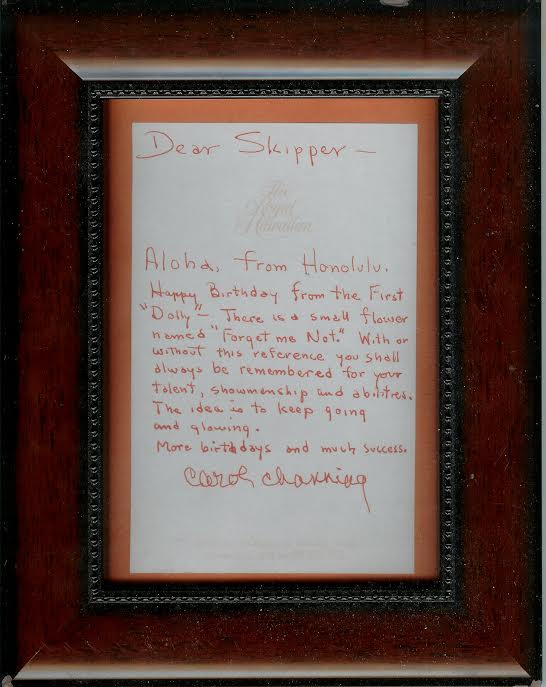 Dear Skipper —
The
Royal
Hawaiian
Aloha, from Honolulu.
Happy Birthday from the First
"Dolly" — There is a small flower
named "Forget me Not." With or
without this reference you shall
always be remembered for your
talent, showmenship and abilities.
The idea is to keep going
and glowing.
More birthdays and much success.
Carol Channing